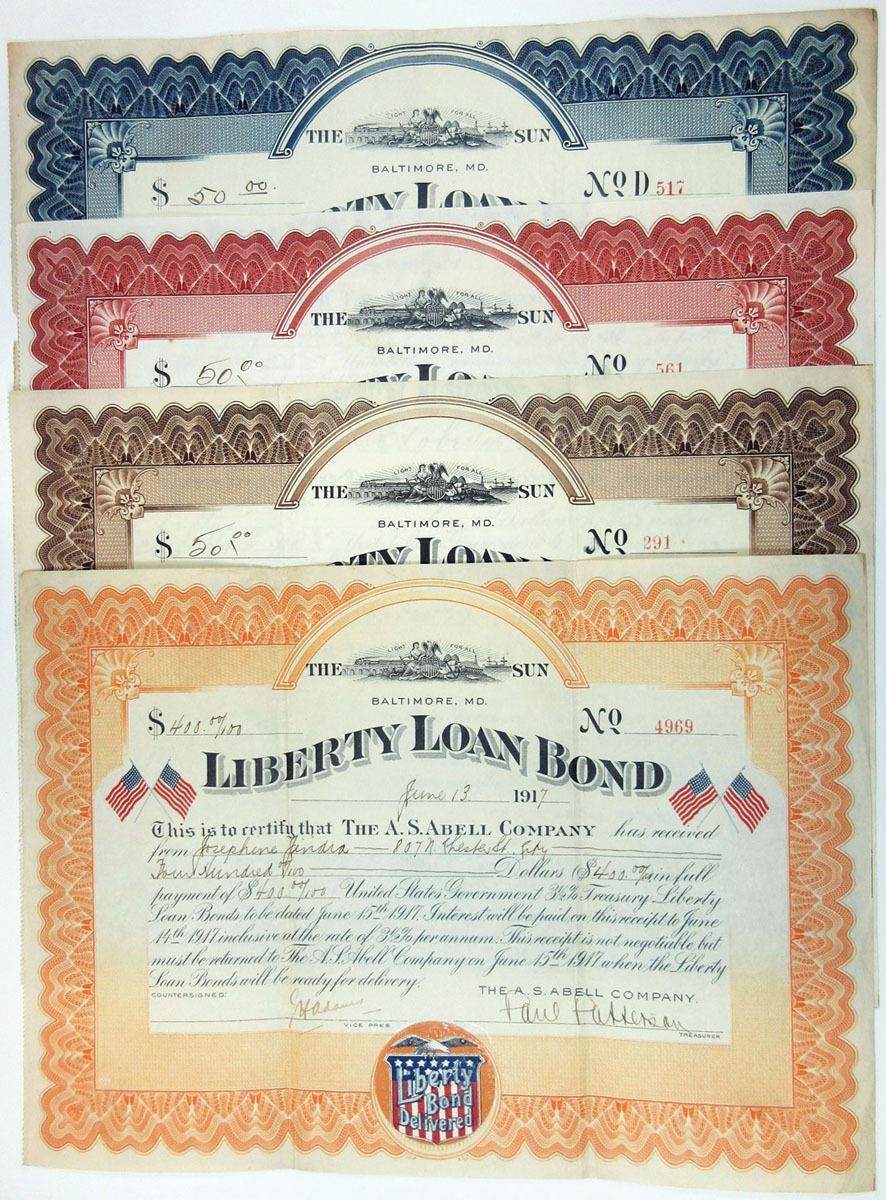 LIGHT FOR ALL
THE SUN
BALTIMORE, MD.
$ 50 00. No D 517
LIGHT FOR ALL
THE SUN
BALTIMORE, MD.
$ 50.00 No 561
LIGHT FOR ALL
THE SUN
BALTIMORE, MD.
$ 50.00 No 291
LIGHT FOR ALL
THE SUN
BALTIMORE, MD.
$ 400.00/100 No 4969
LIBERTY LOAN BOND
June 13 1917
This is to certify that THE A. S. ABELL COMPANY has received
from Josephine 807 N. Chester St. City
Four Hundred 00/100 Dollars ($400.00/100) in full
payment of $400.00/100 United States Government 3½% Treasury Liberty
Loan Bonds to be dated June 15th 1917. Interest will be paid on this receipt to June
14th 1917 inclusive at the rate of 3½% per annum. This receipt is not negotiable but
must be returned to The A. S. Abell Company on June 15th 1917 when the Liberty
Loan Bonds will be ready for delivery.
COUNTERSIGNED: THE A. S. ABELL COMPANY.
Adams Paul Patterson
VICE PRES TREASURER
Liberty
Bond
Delivered